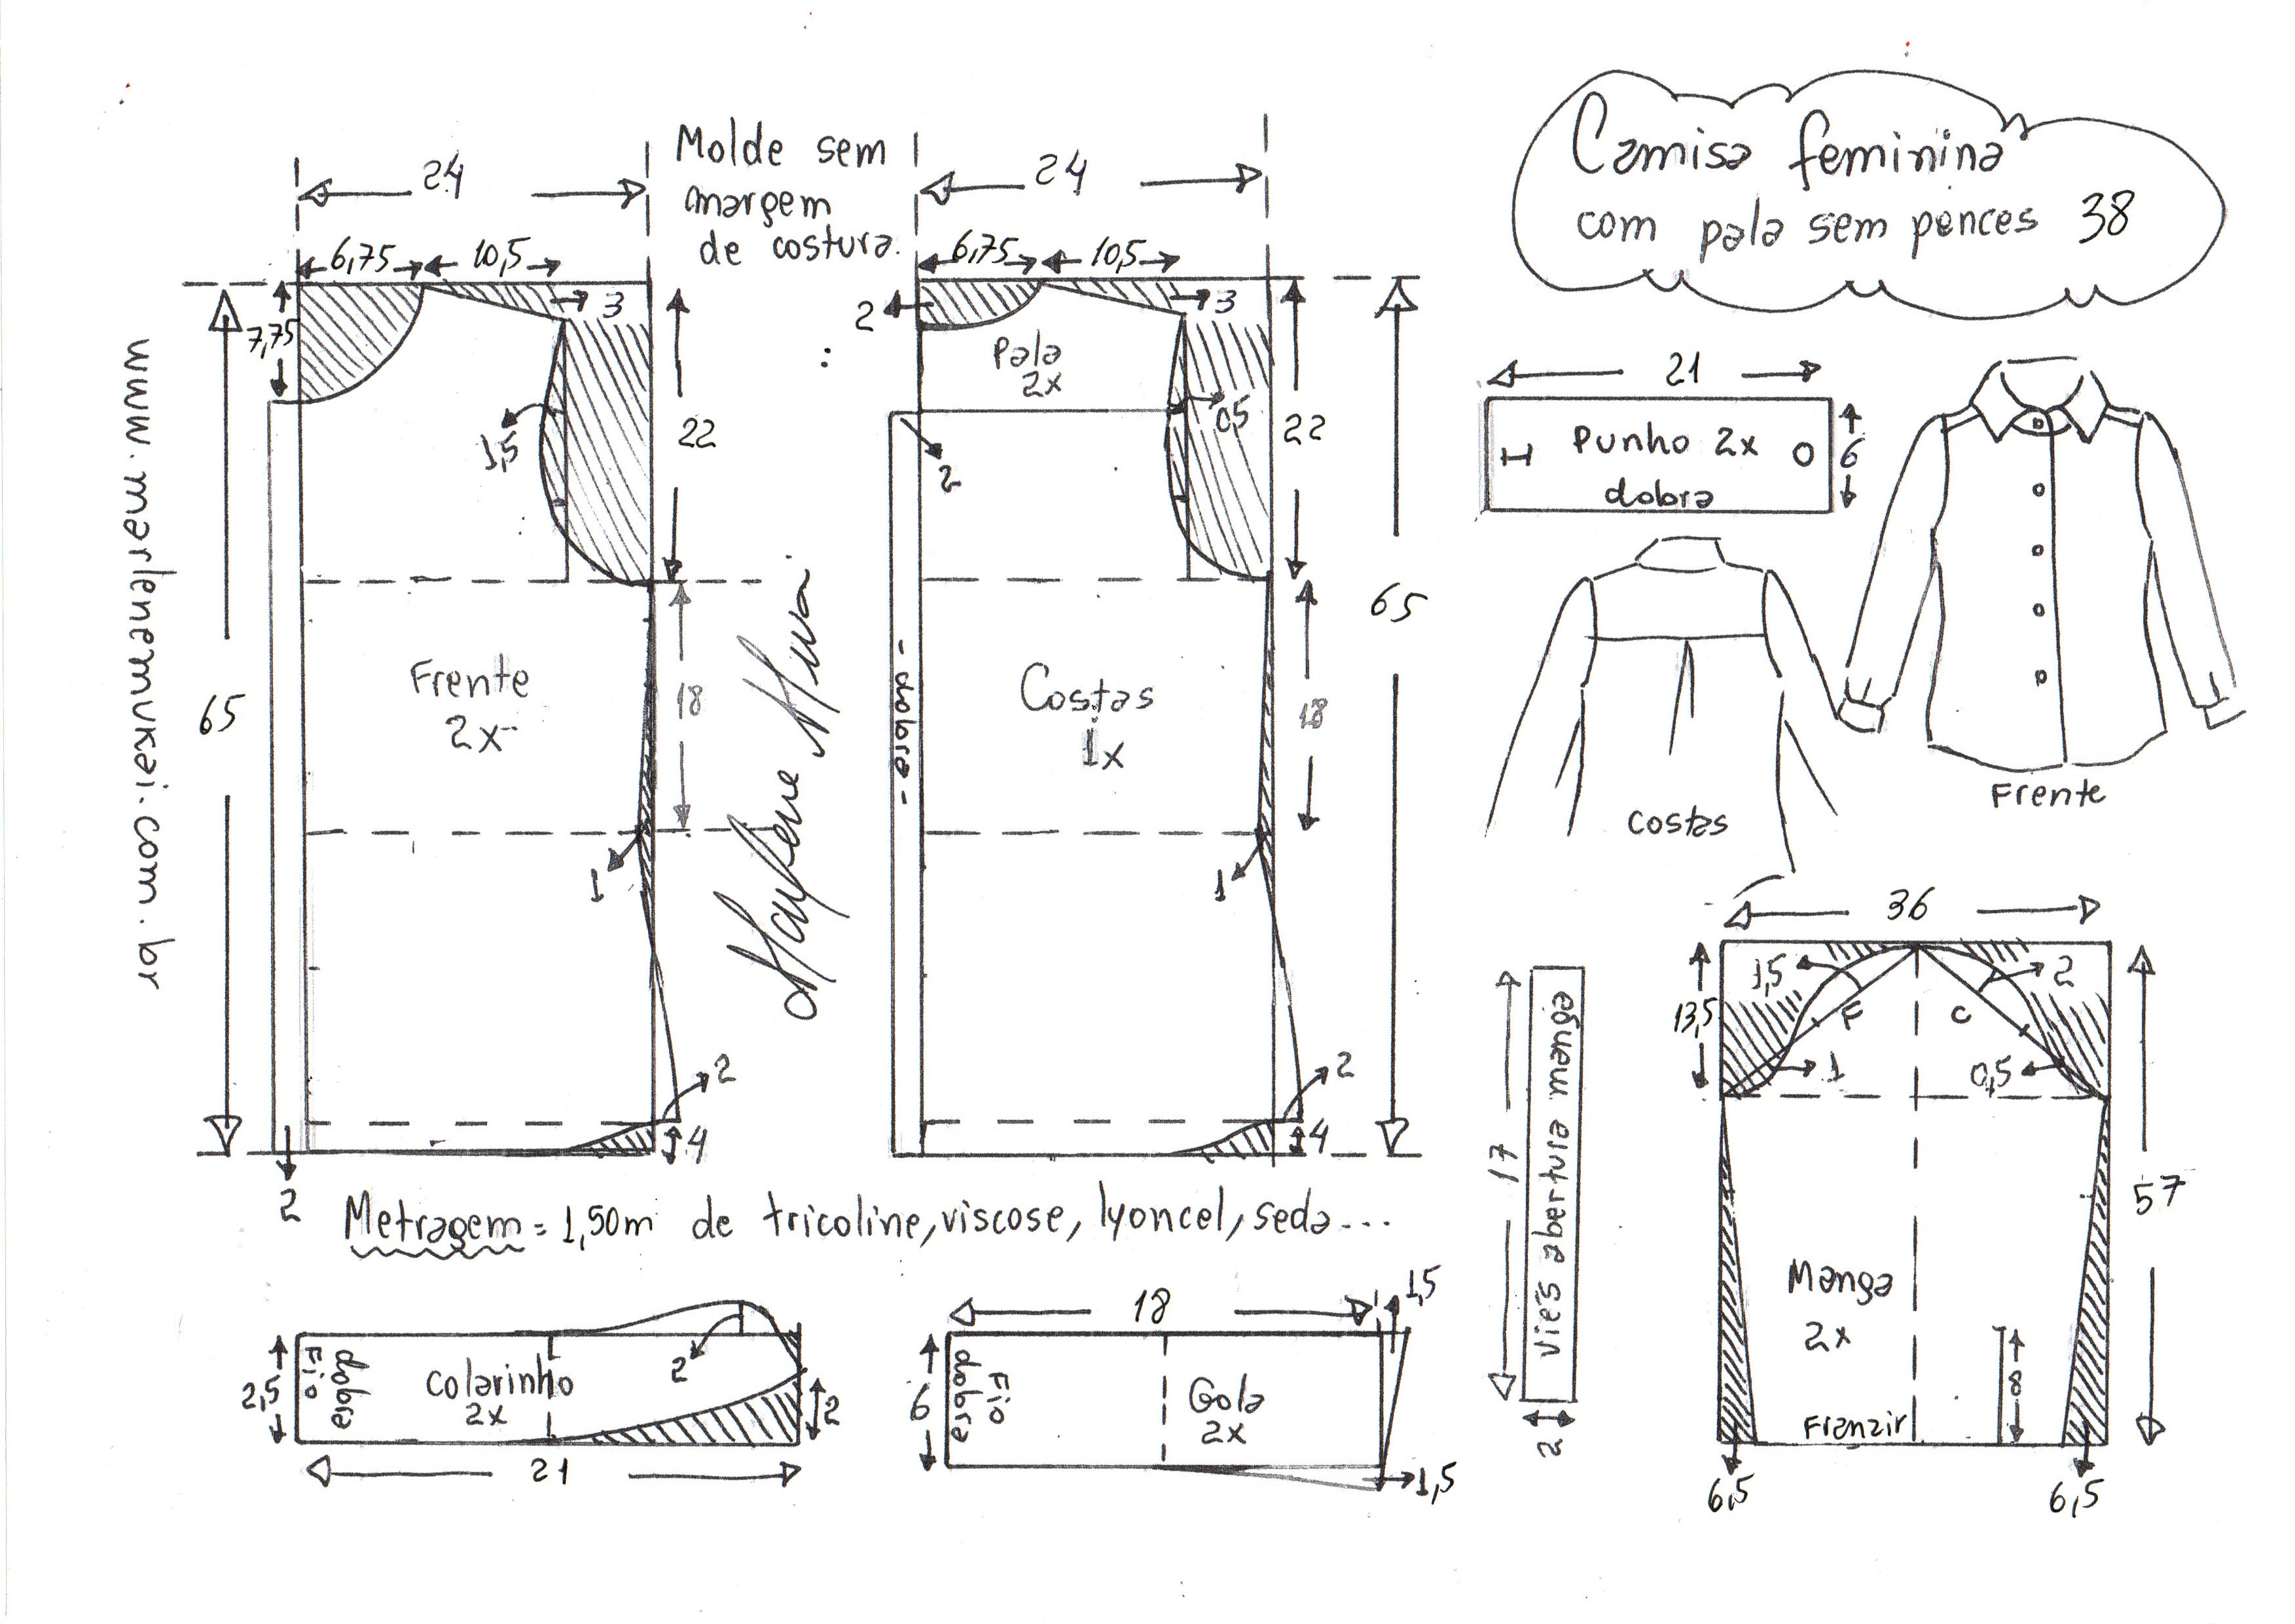 Camisa feminina
com pala sem pences 38
Molde sem
margem
de costura.
www.marlenemukai.com.br
24
6,75
10,5
3
7,75
1,5
22
65
Frente
2x
18
1
2
4
2
24
6,75
10,5
2
3
Pala
2x
0,5
22
2
65
- dobra -
Costas
1x
18
1
2
4
Marlene Mukai
21
Punho 2x
dobra
6
Costas
Frente
Metragem = 1,50m de tricoline, viscose, lyoncel, seda...
2,5
Fio
dobra
Colarinho
2x
2
2
21
18
1,5
6
dobra
Fio
Gola
2x
1,5
17
Viés abertura manga
2
36
13,5
1,5
2
F
C
1
0,5
57
Manga
2x
8
Franzir
6,5
6,5